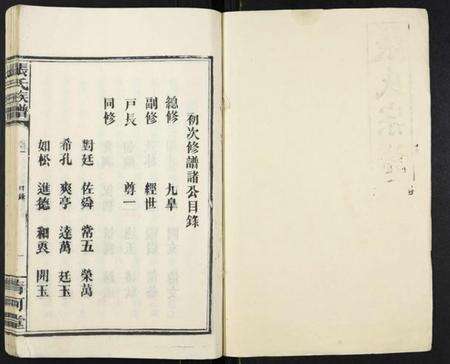 初次修譜諸公目錄
總修 九皐
副修 經世
戸長 尊一
同修
對廷 佐舜 常五 榮萬
希孔 爽亭 達萬 廷玉
如松 進德 和衷 開玉
張氏族譜
清河堂